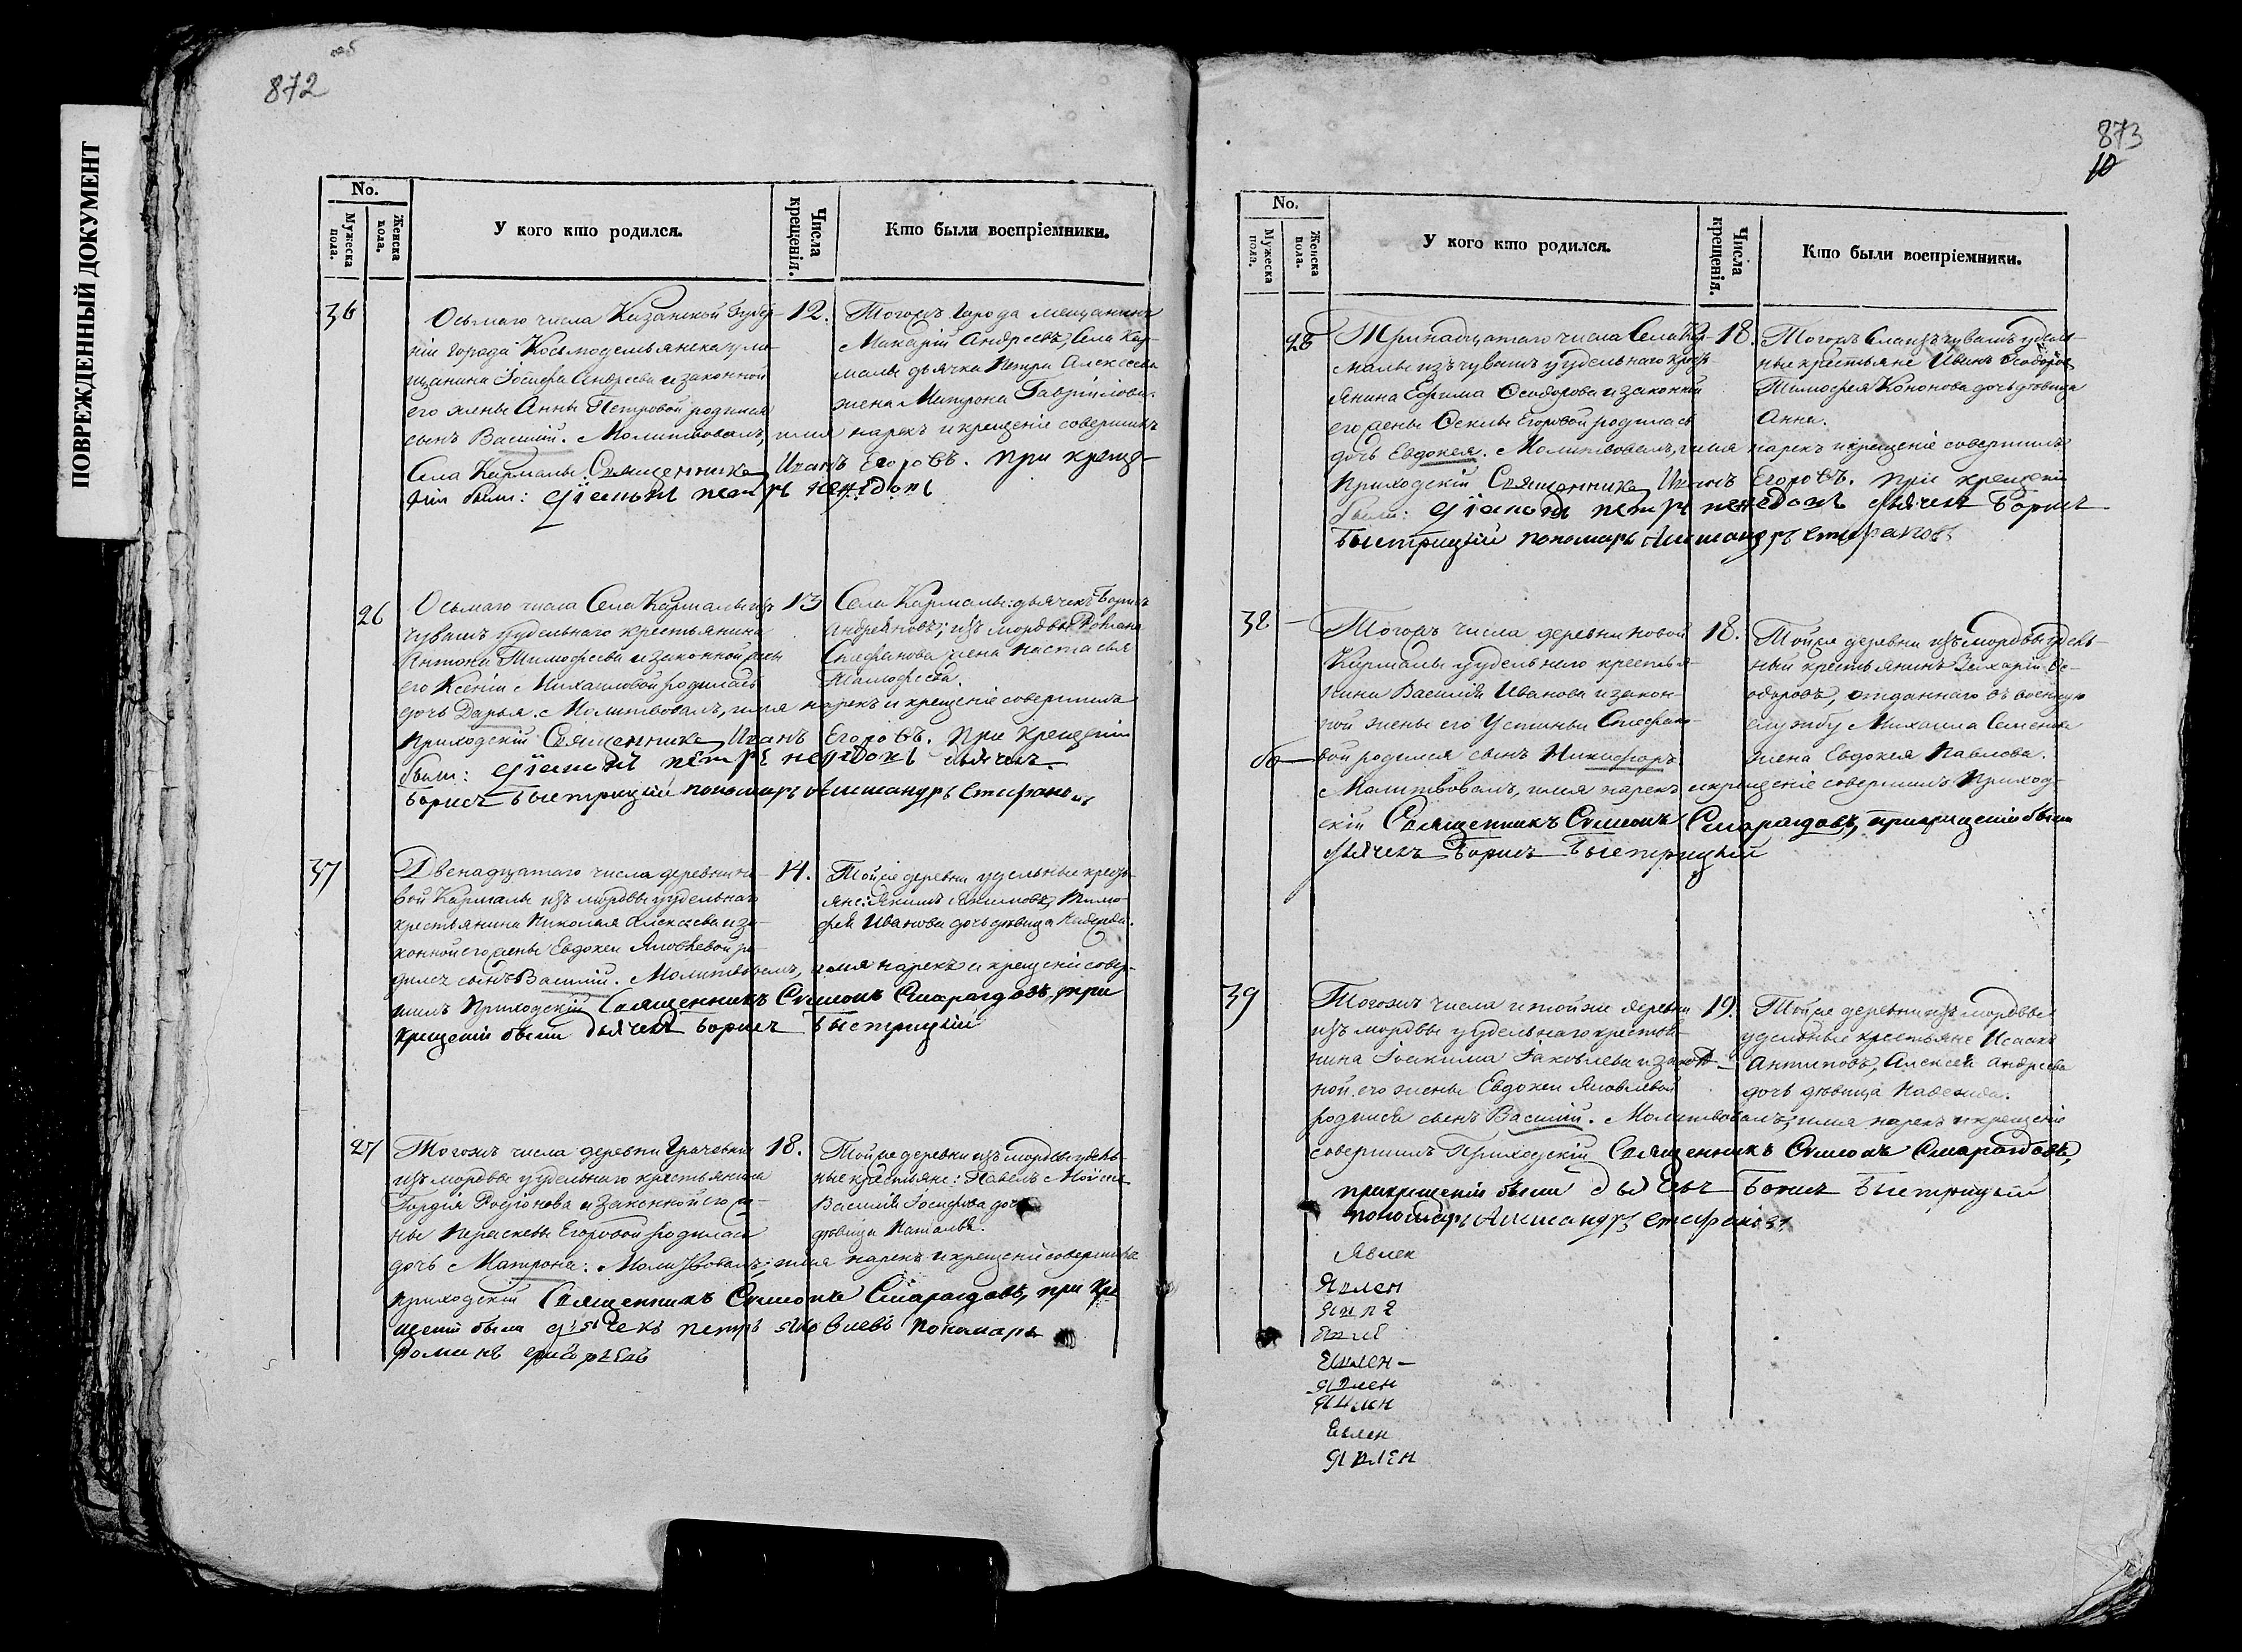 ПОВРЕЖДЕННЫЙ ДОКУМЕНТ
872
No.
Мужеска пола.
Женска пола.
У кого кто родился.
Числа крещенія.
Кто были воспріемники.
36
Осьмаго числа Казанской Губер-
ніи города Космодемьянска у ме-
щанина Іосифа Андреева и законной
его жены Анны Петровой родился
сынъ Василий. Молитвовалъ, имя нарекъ и крещеніе совершилъ
Села Кармалы Священникъ Иванъ Егоровъ. При креще-
ніи были: діаконъ петръ
12.
Тогожъ города мещанинъ
Макарій Андреевъ, Села Кар-
малы дьячка Петра Алексеева
жена Матрона Гаврилова.
26
Осьмаго числа Села Кармалы изъ
чувашъ у удельнаго крестьянина
Антона Тимофеева и законной жены
его Ксеніи Михаиловой родилась
дочь Дарья. Молитвовалъ, имя нарекъ и крещеніе совершилъ
приходскій Священникъ Иванъ Егоровъ. При крещеніи
были: діаконъ петръ дьячекъ
Борисъ Быстрицкій пономарь Александръ Стефановъ
13
Села Кармалы: дьячекъ Борисъ
Андреяновъ; изъ мордвы Романа
Стефанова жена Настасья
Тимофеева.
37
Двенадцатаго числа деревни но-
вой Кармалы изъ мордвы у удельнаго
крестьянина Николая Алексеева и за-
конной его жены Евдокеи Яковлевой ро-
дился сынъ Василий. Молитвовалъ, имя нарекъ и крещеніе совер-
шилъ Приходскій Священникъ Симеонъ Смарагдовъ, при
крещеніи были дьячекъ Борисъ Быстрицкій
14.
Тойже деревни удельные кресть-
яне: Якимъ Тимо-
фея Иванова дочь девица
27
Тогожъ числа деревни Грачевки
изъ мордвы у удельнаго крестьянина
Гордія Родіонова и законной его же-
ны Параскевы Егоровой родилась
дочь Матрона. Молитвовалъ, имя нарекъ и крещеніе совершилъ
приходскій Священникъ Симеонъ Смарагдовъ, при кре
щеніи были дьячекъ петръ яковлевъ пономарь
18.
Тойже деревни изъ мордвы удель-
ные крестьяне: Павелъ
Василія Іосифова дочь
девица Наталья.
873
10
No.
Мужеска пола.
Женска пола.
У кого кто родился.
Числа крещенія.
Кто были воспріемники.
28
Тринадцатаго числа Села Кар-
малы изъ чувашъ у удельнаго кресть
янина Ефима Феодорова и законной
его жены Феклы Егоровой родилась
дочь Евдокея. Молитвовалъ, имя нарекъ и крещеніе совершилъ
Приходскій Священникъ Иванъ Егоровъ. При крещеніи
были: діаконъ петръ дьячекъ Борисъ
Быстрицкій пономарь Александръ Стефановъ
18.
Тогожъ Села изъ чувашъ удель-
ные крестьяне Иванъ Феодоровъ
Тимофея Кононова дочь девица
Анна.
38
Тогожъ числа деревни новой
Кармалы у удельнаго крестья-
нина Василія Иванова и закон-
ной жены его Устиньи Стефано-
вой родился сынъ Никифоръ.
Молитвовалъ, имя нарекъ и крещеніе совершилъ Приход-
скій Священникъ Симеонъ Смарагдовъ, при крещеніи были
дьячекъ Борисъ Быстрицкій
18.
Тойже деревни изъ мордвы удель-
ный крестьянинъ Захарій Фе-
одоровъ, отданнаго въ военную
службу Михаила Семенова
жена Евдокея Павлова.
39
Тогожъ числа и тойже деревни
изъ мордвы у удельнаго крестья-
нина Іоакима Іаковлева и закон-
ной его жены Евдокеи Яковлевой
родился сынъ Василий. Молитвовалъ, имя нарекъ и крещеніе
совершилъ Приходскій Священникъ Симеонъ Смарагдовъ,
при крещеніи были дьячекъ Борисъ Быстрицкій
пономарь Александръ Стефановъ
19.
Тойже деревни изъ мордвы
удельные крестьяне Исаакъ
Антиповъ, Алексея Андреева
дочь девица Надежда.